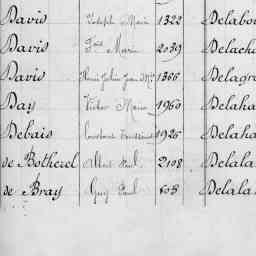 Davis Rodolph Marie 1322 Delabou
Davis Fois Marie 2039 Delach
Davis Henri Julien Jean Mie 1366 Delagra
Day Victor Marie 1960 Delaha
Debais Constant Toussaint 1926 Delaha
de Botherel Albert Paul 2108 Delala
de Bray Guy Paul 803 Delala